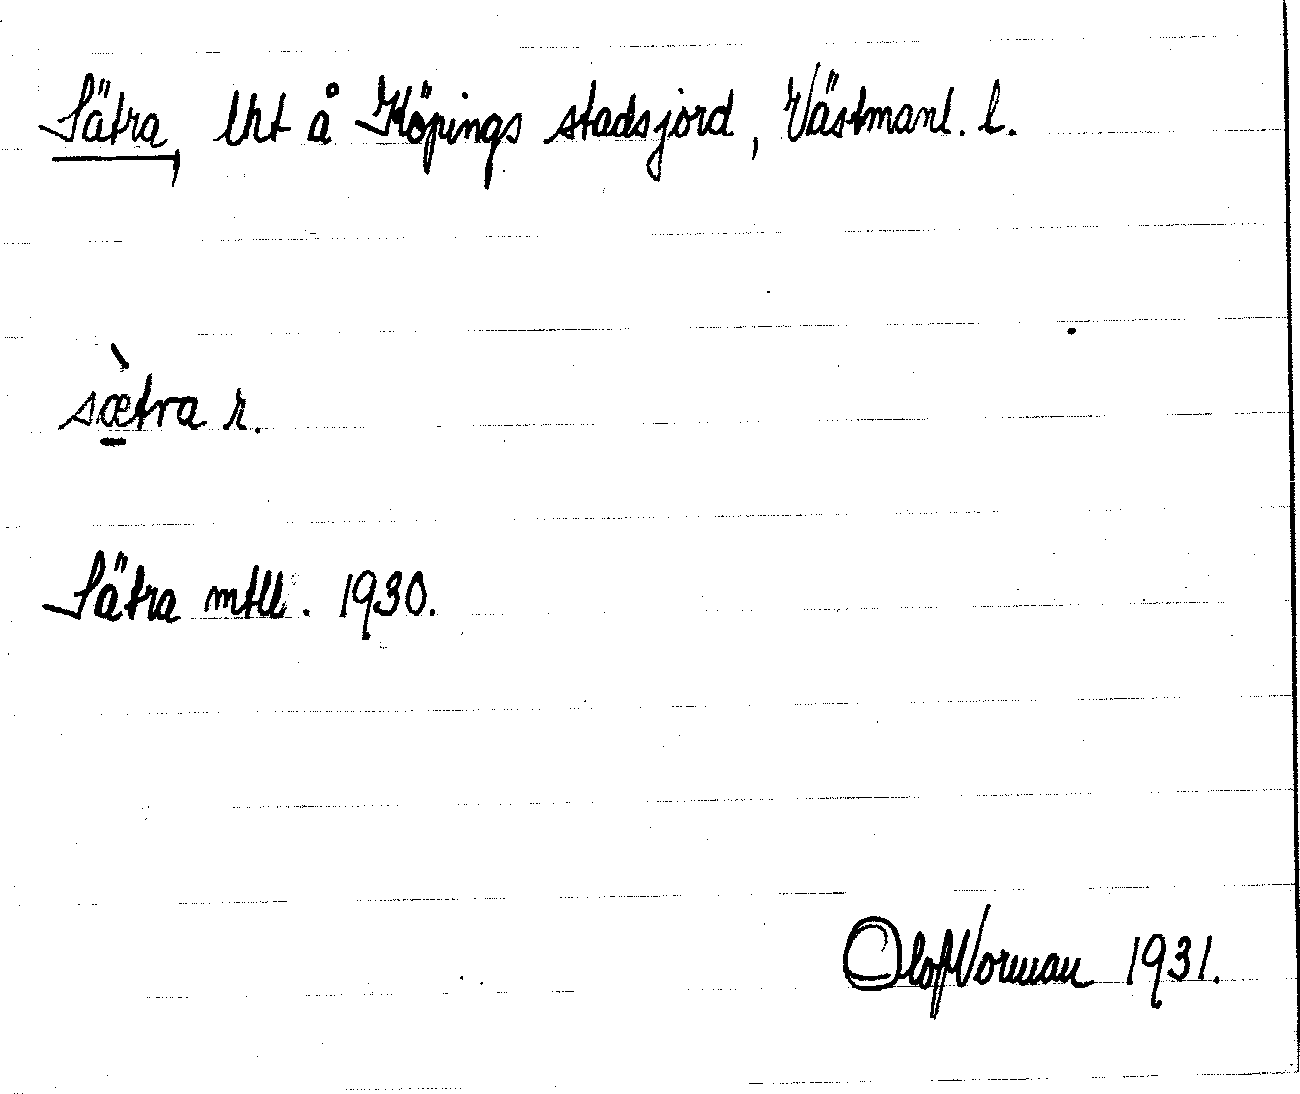 Sätra, lht å Köpings stadsjord, Västmanl. l.
sæ̱̀tra r.
Sätra mtll. 1930.
Olof Norman 1931.